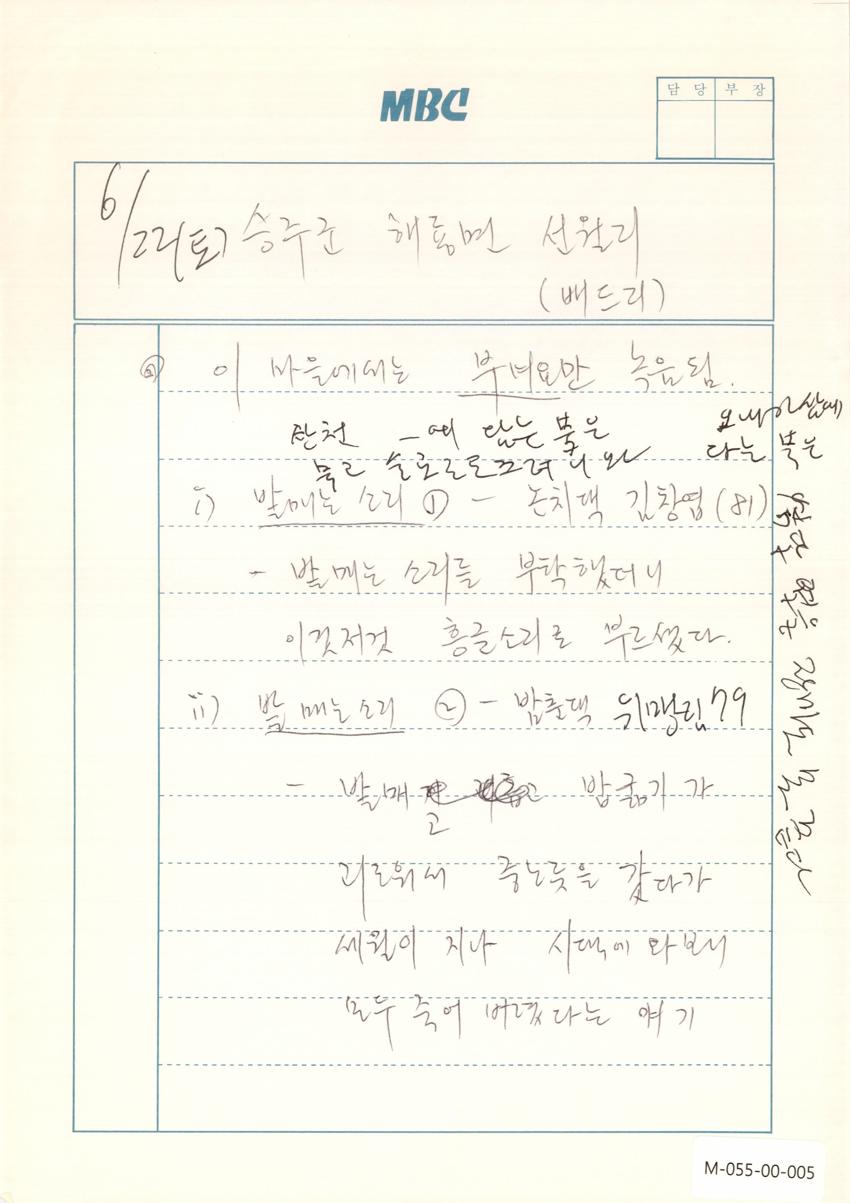 MBC
담 당 부 장
6/22(토) 승주군 해룡면 선월리
(배드리)
이 마을에서는 부녀요만 녹음됨.
산천 에 타는 불은
요내 가삼에
타는 불은
i) 밭매는 소리 ① - 논치댁 김창엽(81)
- 밭매는 소리를 부탁했더니
이것저것 흥글소리로 부르셨다.
ii) 밭매는소리 ② - 밤촌댁 위맹림 79
- 밭매고 밥굶기가
괴로워서 중노릇을 갔다가
세월이 지나 시댁에 와보니
모두 죽어 버렸다는 얘기
M-055-00-005